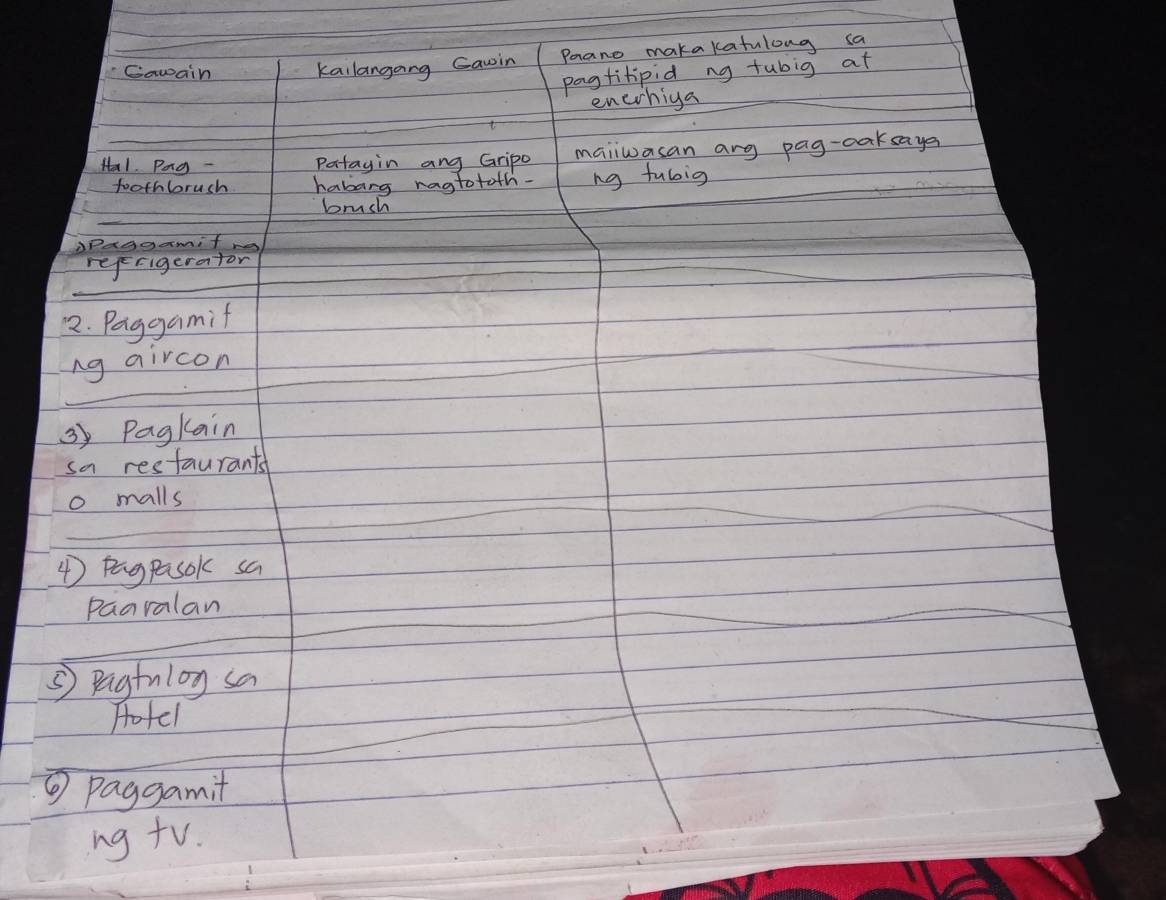 Gawain
Kailangang Gawin
Paano makakatulong sa
pagtitipid ng tubig at
enerhiya
Hal. Pag-
toothbrush
Patayin ang Gripo
habang nagtototh-
brush
maiiwasan ang pag-aaksaya
ng tubig
1) Paggamit ng
refrigerator
2. Paggamit
ng aircon
3) Pagkain
sa restaurants
o malls
4) Pagpasok sa
paaralan
5) Pagtulog sa
Hotel
6) paggamit
ng tv.